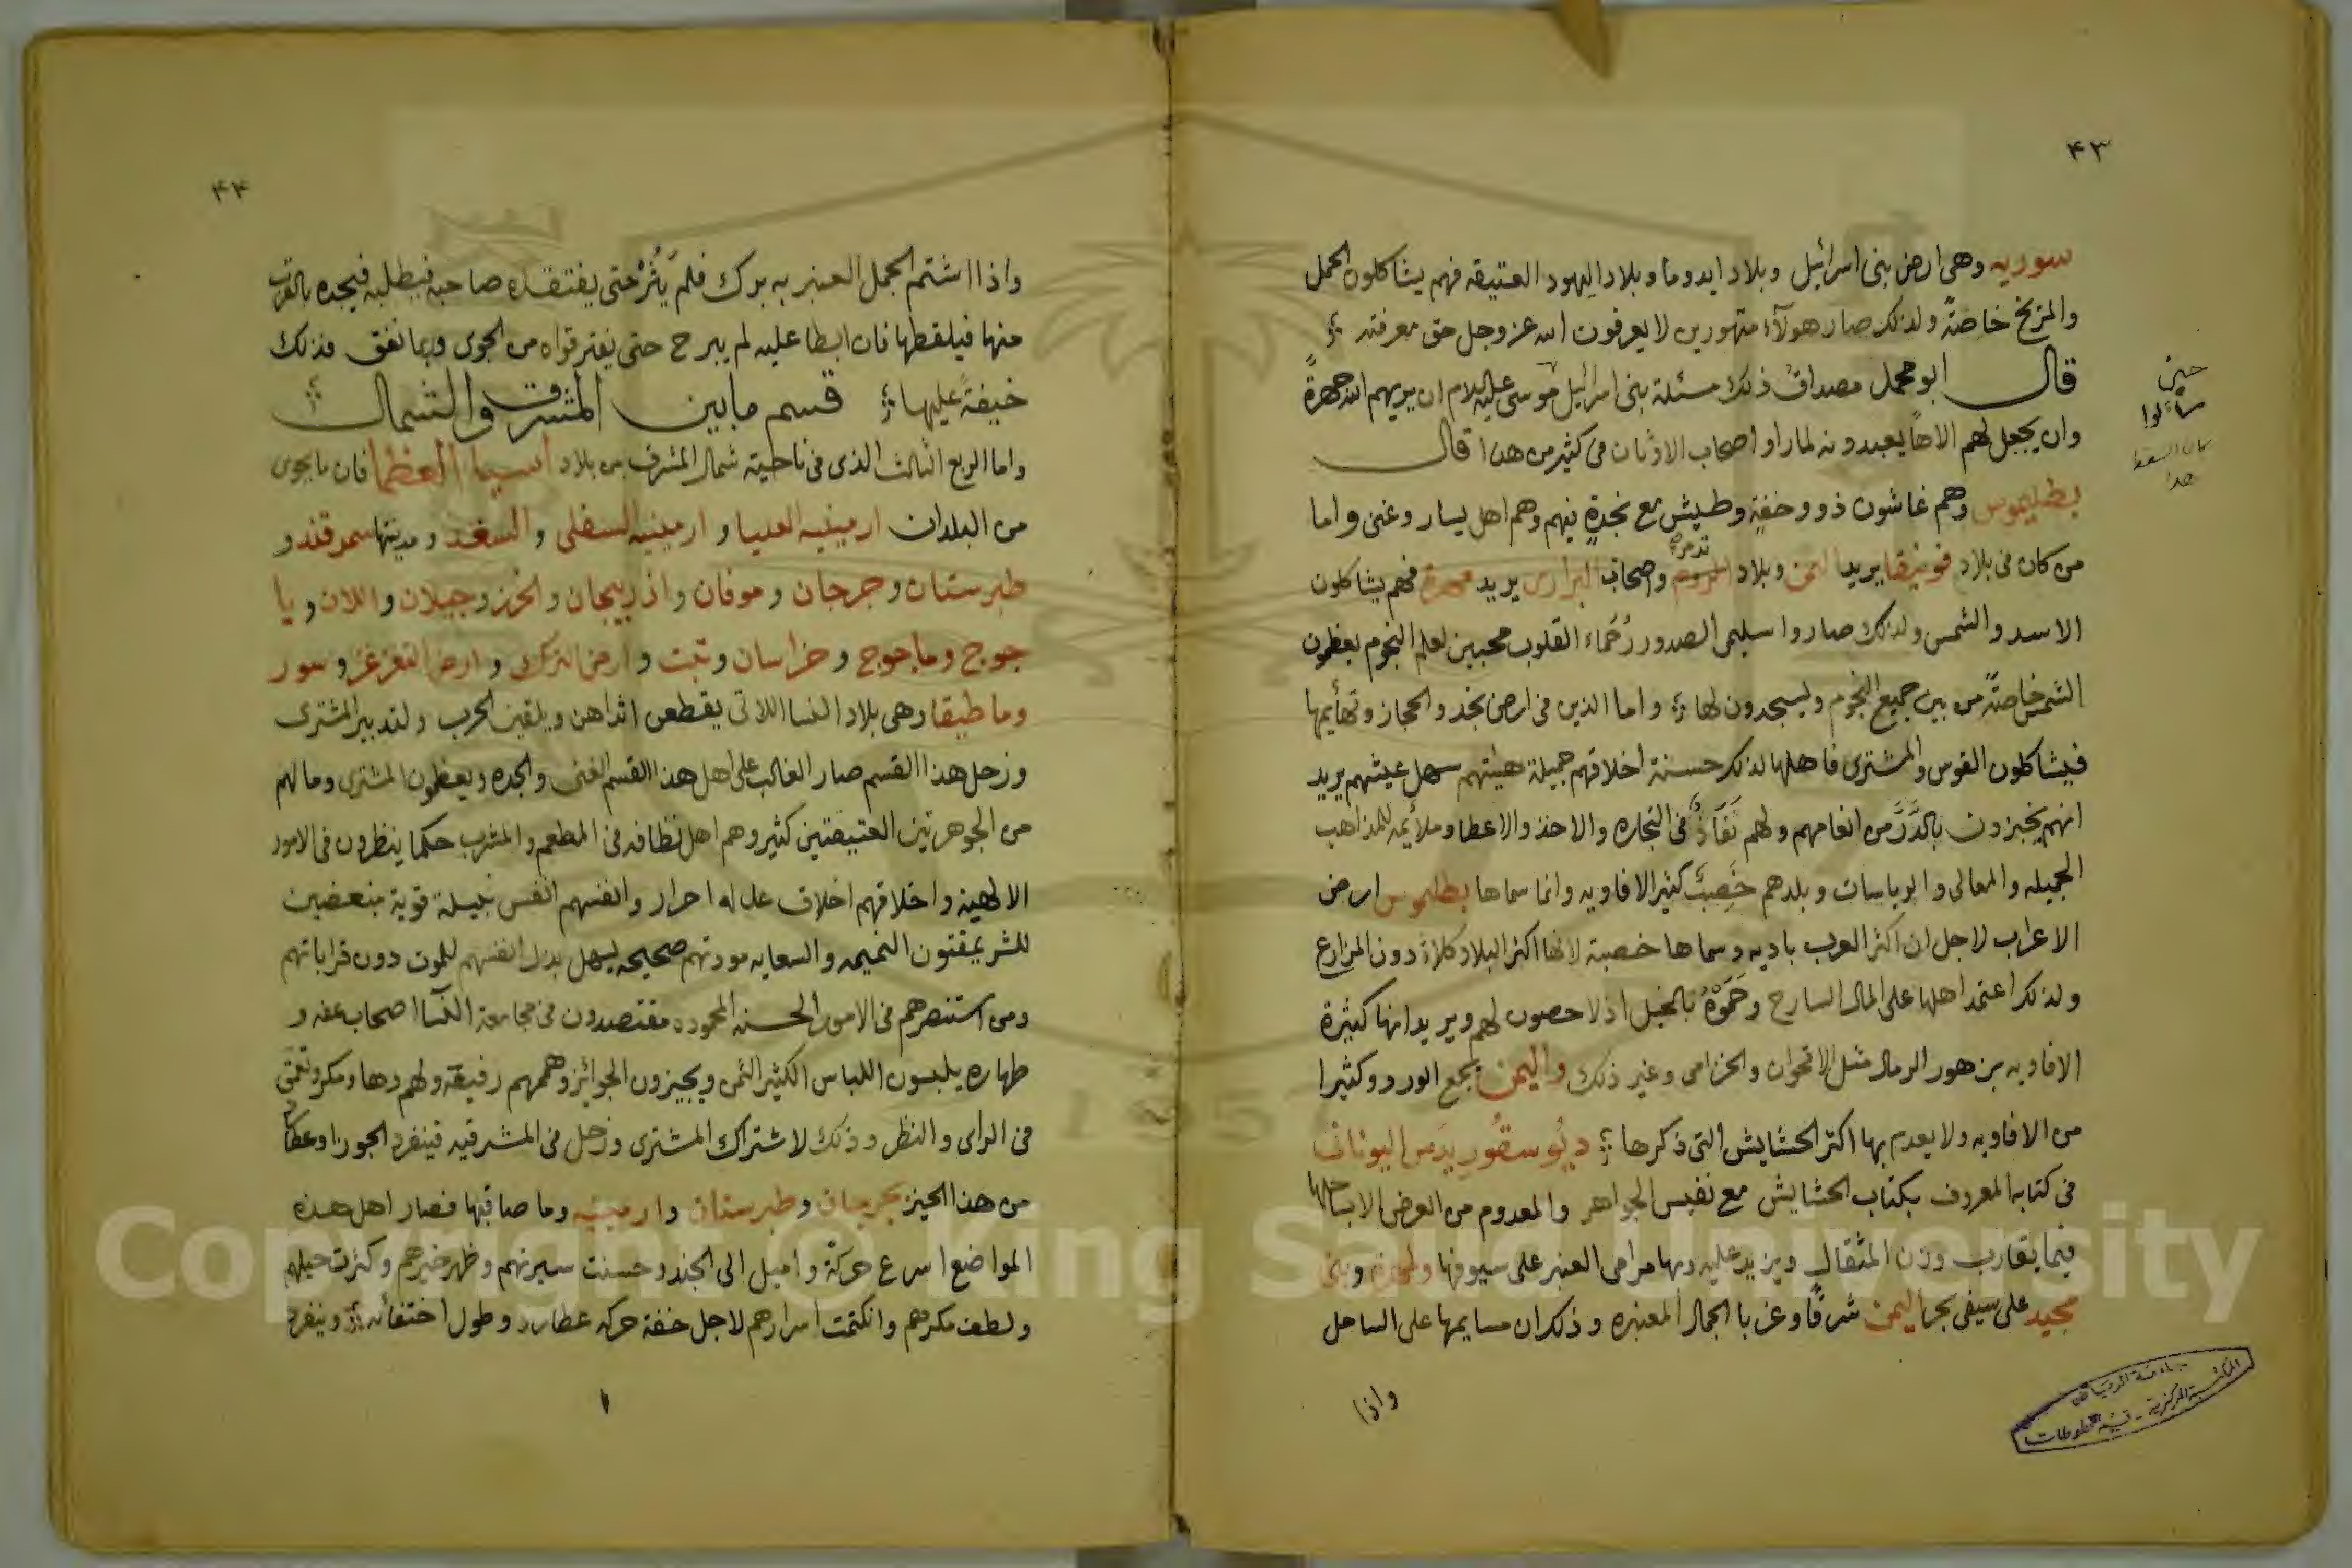 ٤٣
سوريه وهى ارض بنى اسرائيل وبلاد ايدوما وبلاد اليهود العتيقه فهم يشاكلون الحمل
والمريخ خاصةً ولذلك صار هولآء متهورين لا يعرفون الله عز وجل حق معرفته
قال ابو محمد مصداق ذلك مسئلة بنى اسرائيل موسى عليه السلام ان يريهم الله جهرةً
وان يجعل لهم الاهاً يعبدونه لما راوا اصحاب الاوثان فى كثير من هذا قال
بطليموس وهم غاشون ذوو خفةٍ وطيش مع نجدةٍ فيهم وهم اهل يسار وغنى واما
من كان فى بلاد فونيقا يريد اليمن وبلاد تدمر واصحاب البرارى يريد مهرة فهم يشاكلون
الاسد والشمس ولذلك صاروا سليمى الصدور رُحَماء القلوب محبين لعلم النجوم يعظمون
الشمس خاصةً من بين جميع النجوم ويسجدون لها واما الذين فى ارض نجد والحجاز وتهايمها
فيشاكلون القوس والمشترى فاهلها لذلك حسنة اخلاقهم جميلة هيئتهم سهل عيشهم يريد
انهم يجبزون بالدَّرِّ من انعامهم ولهم نَفَاذٌ فى التجاره والاخذ والاعطا وملائمه للمذاهب
الجميله والمعالى والرياسات وبلدهم خَصِبٌ كثير الافاويه وانما سماها بطلموس ارض
الاعراب لاجل ان اكثر العرب باديه وسماها خصبة لانها اكثر البلاد كلاءً دون المزارع
ولذلك اعتمد اهلها على المال السارح وحَمَوْهُ بالخيل اذ لا حصون لهم ويريد انها كثيرة
الافاويه من هور الرمال مثل الاقحوان والخزامى وغير ذلك واليمن يجمع الورد وكثيرا
من الافاويه ولا يعدم بها اكثر الحشايش التى ذكرها ديُوسقُورِيدَس اليونانى
فى كتابه المعروف بكتاب الحشايش مع نفيس الجواهر والمعدوم من العرض الا بساحلها
فيما يقارب وزن المثقال ويزيد عليه وبها مرامى العنبر على سيوفها ولمهرة وبنى
مجيد على سيفى بحر اليمن شرقًا وغربا الجمال المعنبره وذلك ان مسايمها على الساحل
واذا
حين
سألوا
جامعة الرياض
المكتبة المركزية - قسم المخطوطات
٤٤
واذا اشتم الجمل العنبر به برك فلم يَثُرْ حتى يفتقده صاحبه فيطلبه فيجده بالقرب
منها فيلقطها فان ابطا عليه لم يبرح حتى يفتر قواه من الجوى وربما نفق فذلك
خيفةً عليها قسم مابين المشرق والشمال
واما الربع الثالث الذى فى ناحية شمال المشرق من بلاد اسيا العظما فان ما يحوى
من البلدان ارمينيه العليا وارمينيه السفلى والسغد ومدينتها سمرقند و
طبرستان وجرجان وموقان واذربيجان والخزز وجيلان واللان ويا
جوج وماجوج وخراسان وتبت وارض الترك وارض التغزغز وسور
وماطيقا وهى بلاد النسا اللاتى يقطعن اثداهن ويلقين الحرب ولتدبير المشترى
وزحل هذا القسم صار الغالب على اهل هذا القسم الغنى والجده ويعظمون المشترى وما لهم
من الجوهرتين العتيقتين كثير وهم اهل نظافه فى المطعم والمشرب حكما ينظرون فى الامور
الالهية واخلاقهم اخلاق عدله احرار وانفسهم انفس نبيلة قوية مبغضين
للشر يمقتون النميمه والسعايه مودتهم صحيحه يسهل بذل انفسهم للموت دون قراباتهم
ومن استنصرهم فى الامور الحسنه المحموده مقتصدون فى مجامعة النسآ اصحاب عفه و
طهاره يلبسون اللباس الكثير الثمن ويجيزون الجوائز وهممهم رفيقه ولهم دها ومكر وتعمق
فى الراى والنظر وذلك لاشتراك المشترى وزحل فى المشرقيه فينفرد الجوزا وعطارد
من هذا الحيز بجرجان وطبرستان وارمينيه وما صاقبها فصار اهل هذه
المواضع اسرع حركةً واميل الى الجند وحسنت سيرتهم وظهر خيرهم وكثرت حيلهم
ولطف مكرهم وانكتمت اسرارهم لاجل خفة حركه عطارد وطول اختفائه وينفرد
Copyright © King Saud University
1957